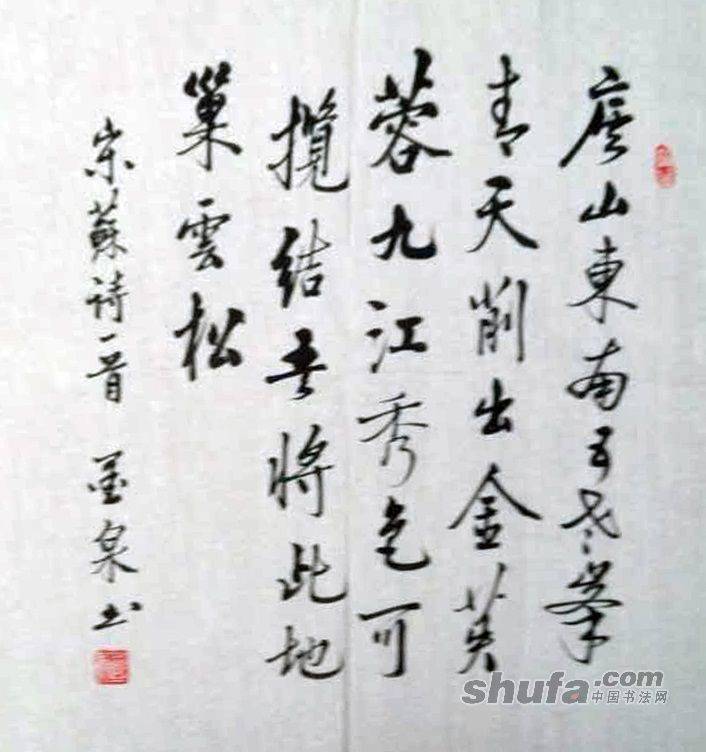 廬山東南五老峯
青天削出金芙
蓉九江秀色可
攬結吾將此地
巢雲松
宋蘇诗一首 墨泉书
shufa.com
中国书法网